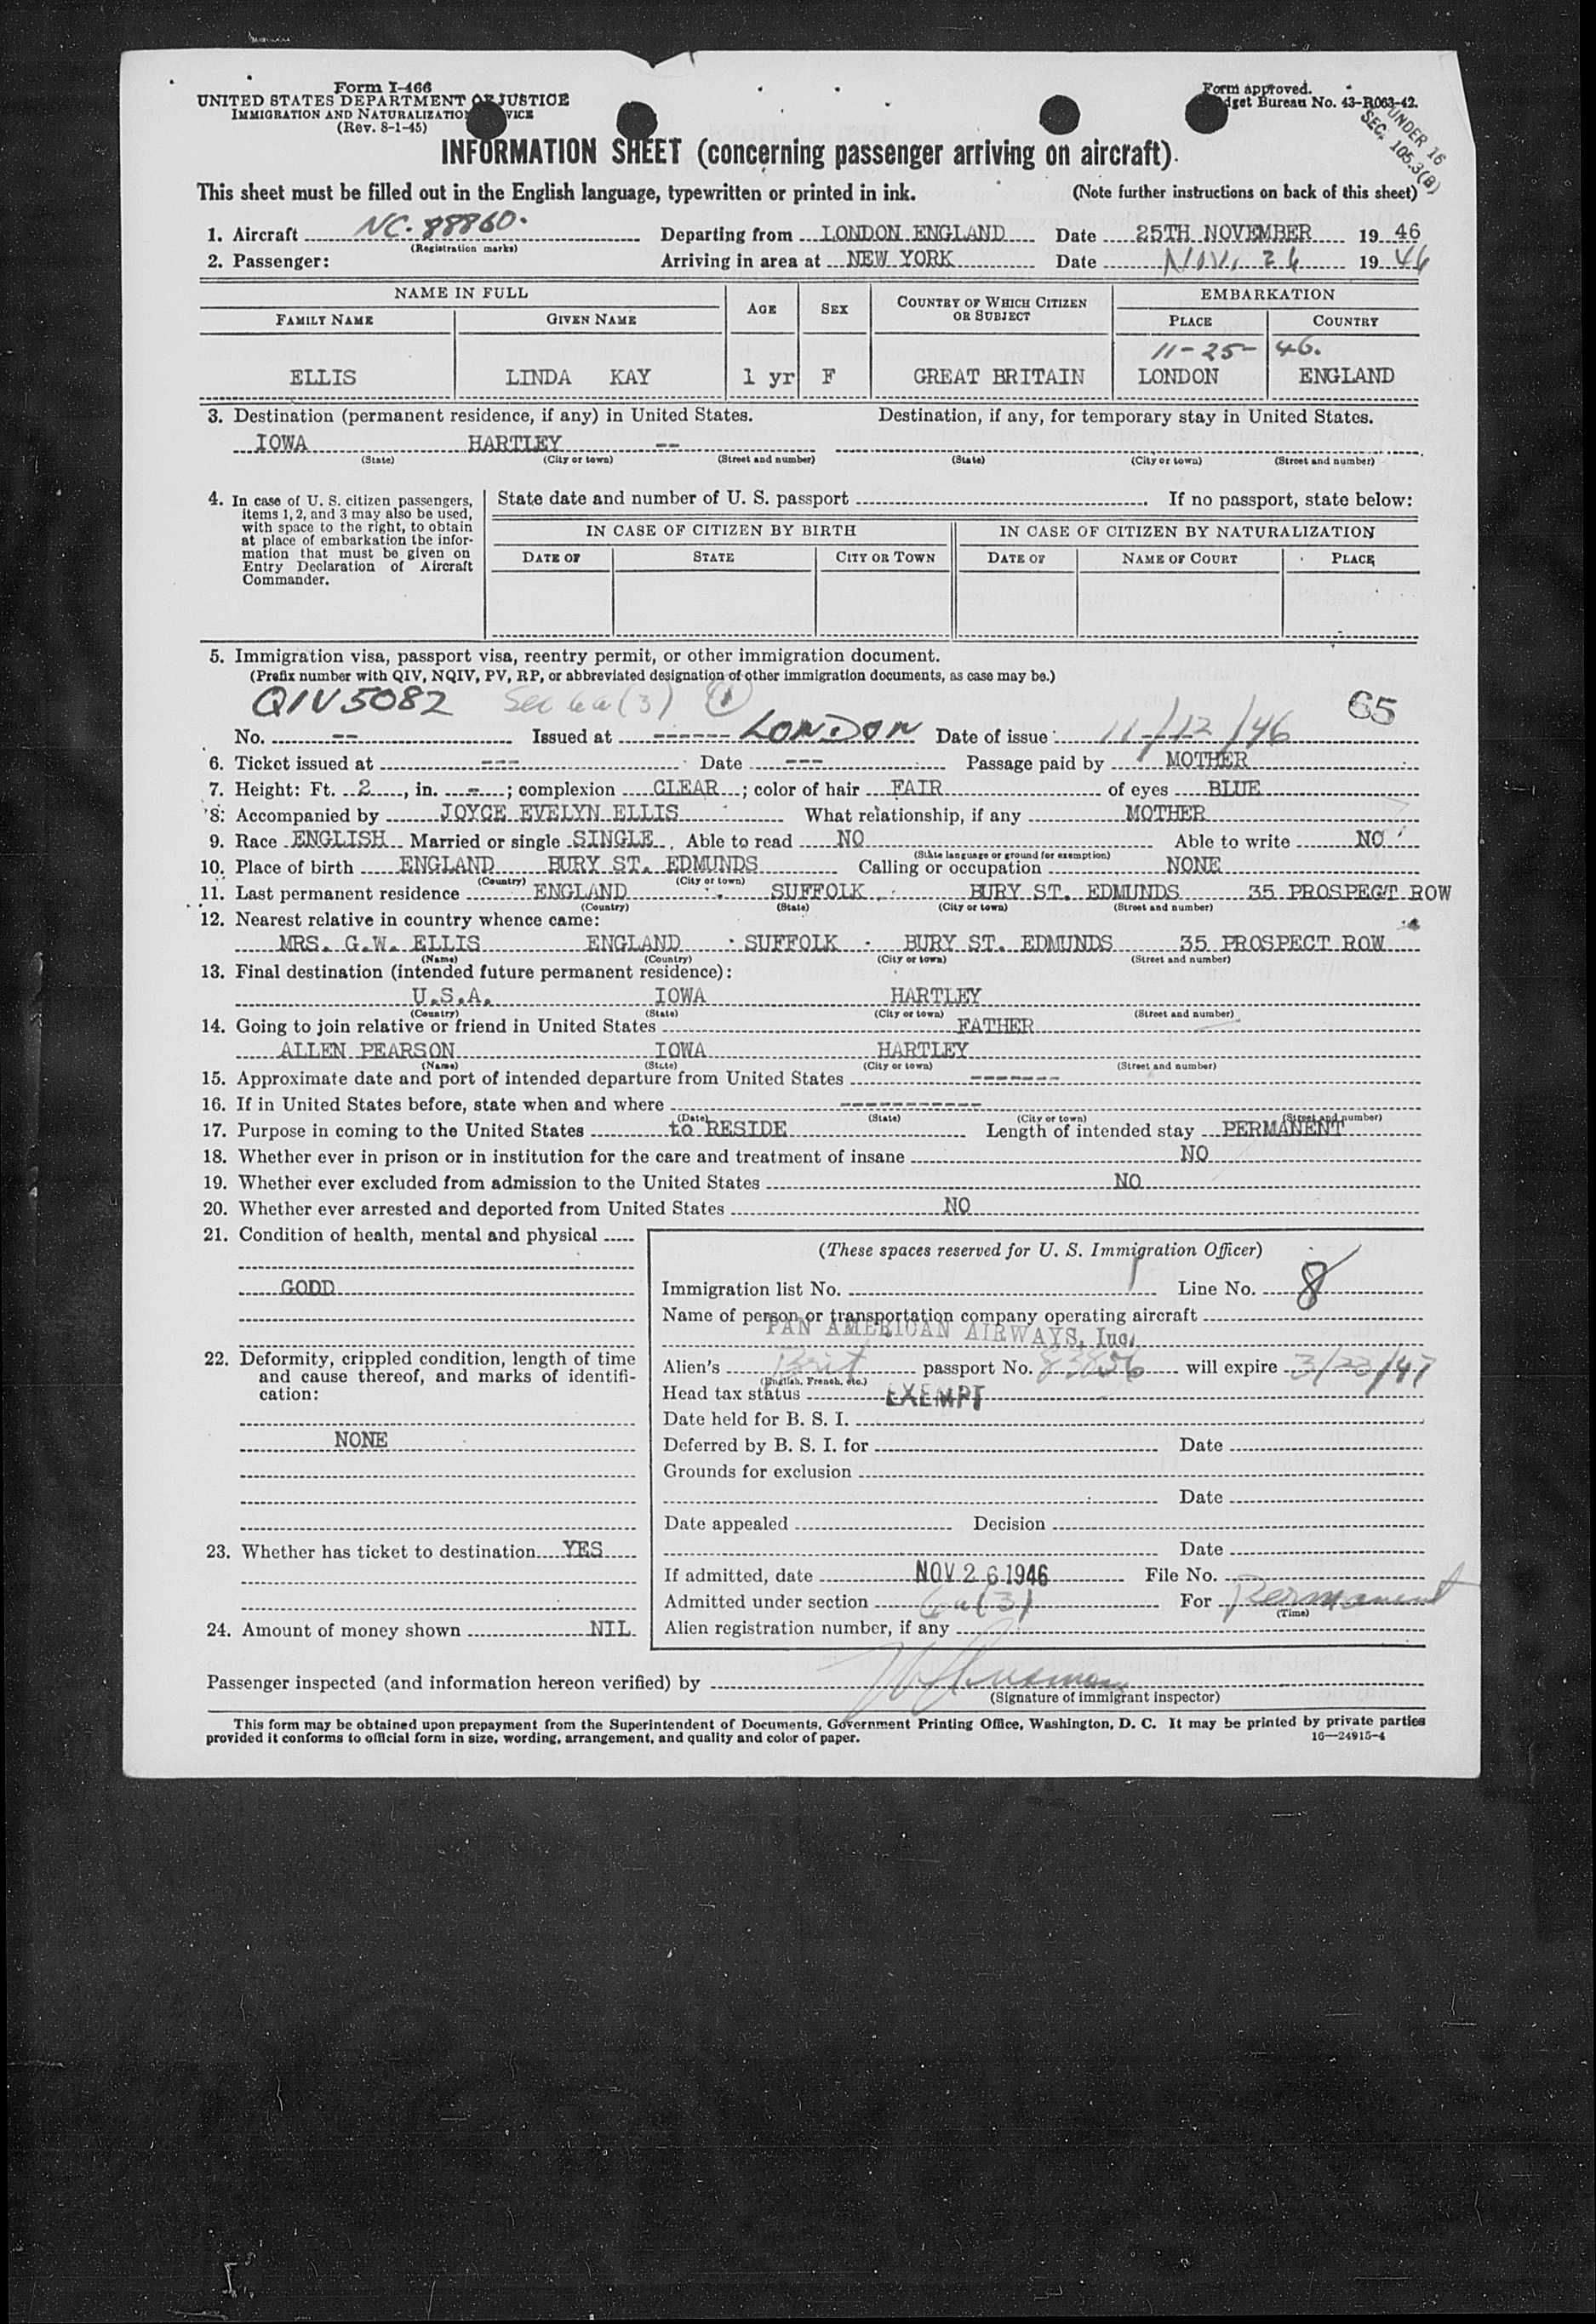 Form I-466
UNITED STATES DEPARTMENT OF JUSTICE
IMMIGRATION AND NATURALIZATION SERVICE
(Rev. 8-1-45)
Form approved.
Budget Bureau No. 43-R063-42.
UNDER 16
SEC. 105.3(B)
INFORMATION SHEET (concerning passenger arriving on aircraft).
This sheet must be filled out in the English language, typewritten or printed in ink. (Note further instructions on back of this sheet)
1. Aircraft NC-88860. Departing from LONDON ENGLAND Date 25TH NOVEMBER 1946
(Registration marks)
2. Passenger: Arriving in area at NEW YORK Date Nov. 26 1946
NAME IN FULL AGE SEX COUNTRY OF WHICH CITIZEN OR SUBJECT EMBARKATION
FAMILY NAME GIVEN NAME PLACE COUNTRY
11-25-46.
ELLIS LINDA KAY 1 yr F GREAT BRITAIN LONDON ENGLAND
3. Destination (permanent residence, if any) in United States. Destination, if any, for temporary stay in United States.
IOWA HARTLEY --
(State) (City or town) (Street and number) (State) (City or town) (Street and number)
4. In case of U. S. citizen passengers, items 1, 2, and 3 may also be used, with space to the right, to obtain at place of embarkation the information that must be given on Entry Declaration of Aircraft Commander.
State date and number of U. S. passport. If no passport, state below:
IN CASE OF CITIZEN BY BIRTH IN CASE OF CITIZEN BY NATURALIZATION
DATE OF STATE CITY OR TOWN DATE OF NAME OF COURT PLACE
5. Immigration visa, passport visa, reentry permit, or other immigration document.
(Prefix number with QIV, NQIV, PV, RP, or abbreviated designation of other immigration documents, as case may be.)
QIV 5082 Sec 6a(3) 1 65
No. -- Issued at ------ LONDON Date of issue 11/12/46
6. Ticket issued at --- Date --- Passage paid by MOTHER
7. Height: Ft. 2, in. -; complexion CLEAR; color of hair FAIR of eyes BLUE
8. Accompanied by JOYCE EVELYN ELLIS What relationship, if any MOTHER
9. Race ENGLISH Married or single SINGLE, Able to read NO Able to write NO
(State language or ground for exemption)
10. Place of birth ENGLAND BURY ST. EDMUNDS Calling or occupation NONE
(Country) (City or town)
11. Last permanent residence ENGLAND SUFFOLK BURY ST. EDMUNDS 35 PROSPECT ROW
(Country) (State) (City or town) (Street and number)
12. Nearest relative in country whence came:
MRS. G.W. ELLIS ENGLAND SUFFOLK BURY ST. EDMUNDS 35 PROSPECT ROW
(Name) (Country) (City or town) (Street and number)
13. Final destination (intended future permanent residence):
U.S.A. IOWA HARTLEY
(Country) (State) (City or town) (Street and number)
14. Going to join relative or friend in United States FATHER
ALLEN PEARSON IOWA HARTLEY
(Name) (State) (City or town) (Street and number)
15. Approximate date and port of intended departure from United States -------
16. If in United States before, state when and where -----------
(Date) (State) (City or town) (Street and number)
17. Purpose in coming to the United States to RESIDE Length of intended stay PERMANENT
18. Whether ever in prison or in institution for the care and treatment of insane NO
19. Whether ever excluded from admission to the United States NO
20. Whether ever arrested and deported from United States NO
21. Condition of health, mental and physical
GODD
22. Deformity, crippled condition, length of time and cause thereof, and marks of identification:
NONE
23. Whether has ticket to destination YES
24. Amount of money shown NIL
(These spaces reserved for U. S. Immigration Officer)
Immigration list No. 1 Line No. 8
Name of person or transportation company operating aircraft
PAN AMERICAN AIRWAYS, Inc.
Alien's Brit passport No. 83856 will expire 3/23/47
(English, French, etc.)
Head tax status EXEMPT
Date held for B. S. I.
Deferred by B. S. I. for Date
Grounds for exclusion
Date
Date appealed Decision
Date
If admitted, date NOV 26 1946 File No.
Admitted under section 6a(3) For Permanent
(Time)
Alien registration number, if any
Passenger inspected (and information hereon verified) by
(Signature of immigrant inspector)
This form may be obtained upon prepayment from the Superintendent of Documents, Government Printing Office, Washington, D. C. It may be printed by private parties
provided it conforms to official form in size, wording, arrangement, and quality and color of paper. 16—24915-4